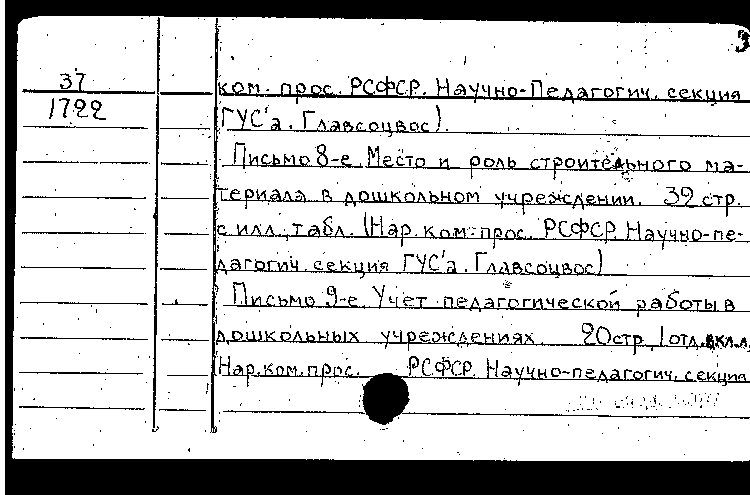 3
37
1722
ком. прос. РСФСР. Научно-Педагогич. секция
ГУС'а. Главсоцвос).
Письмо 8-е. Место и роль строительного ма-
териала в дошкольном учреждении. 32 стр.
с илл., табл. (Нар. ком. прос. РСФСР. Научно-пе-
дагогич. секция ГУС'а. Главсоцвос)
Письмо 9-е. Учет педагогической работы в
дошкольных учреждениях. 20 стр. 1 отд. вкл. л.
(Нар. ком. прос. РСФСР. Научно-педагогич. секция